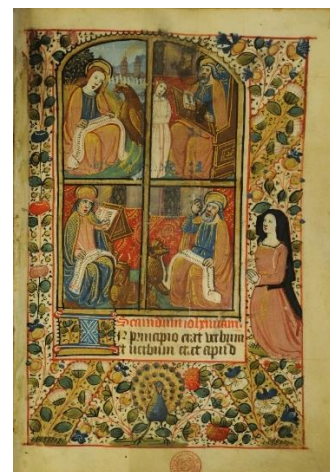 Secundum iohannem.
In principio erat verbum
et verbum erat apud